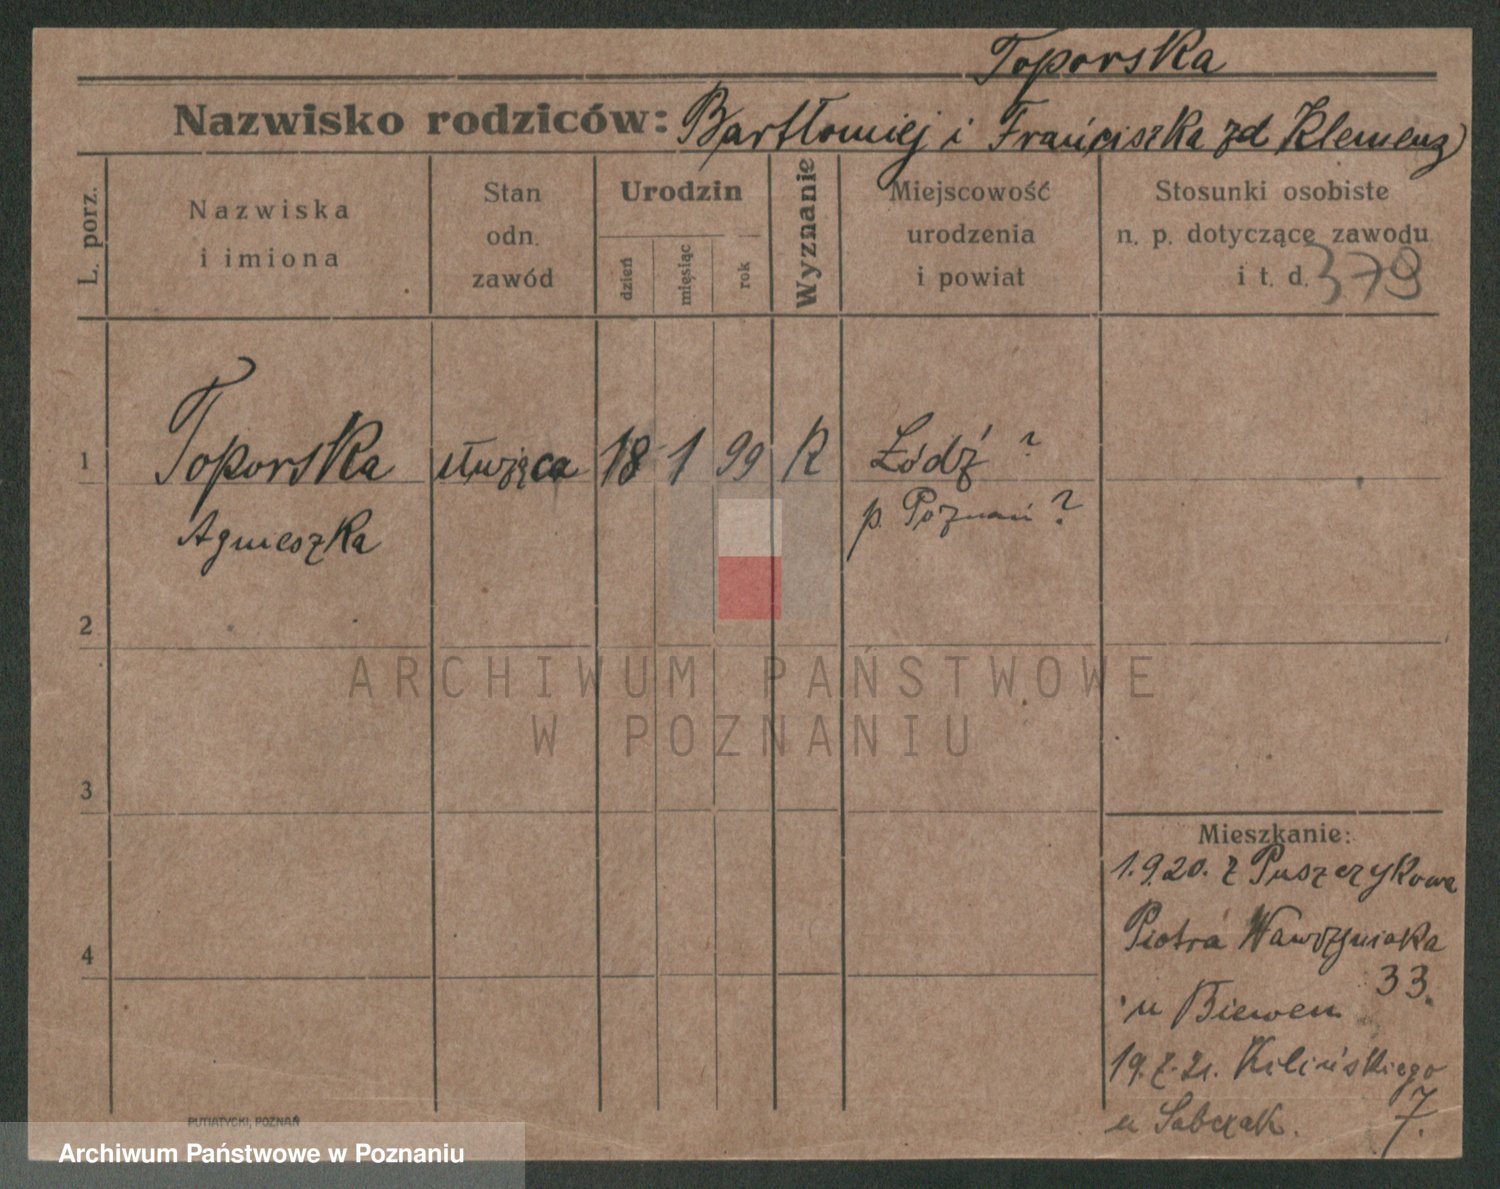 Toporska
Nazwisko rodziców: Bartłomiej i Franciszka zd Klemenz
L. porz.
Nazwiska
i imiona
Stan
odn.
zawód
Urodzin
dzień
miesiąc
rok
Wyznanie
Miejscowość
urodzenia
i powiat
Stosunki osobiste
n. p. dotyczące zawodu
i t. d. 379
1 Toporska służąca 18 1 99 R Łódź ?
Agnieszka p. Poznań ?
2
3
4
Mieszkanie:
1.9.20. z Puszczykowa
Piotra Wawrzyniaka
33.
u Biewen
19.7.21. Kilińskiego
u Sobczak. 7.
PUTIATYCKI, POZNAŃ
ARCHIWUM PAŃSTWOWE
W POZNANIU
Archiwum Państwowe w Poznaniu